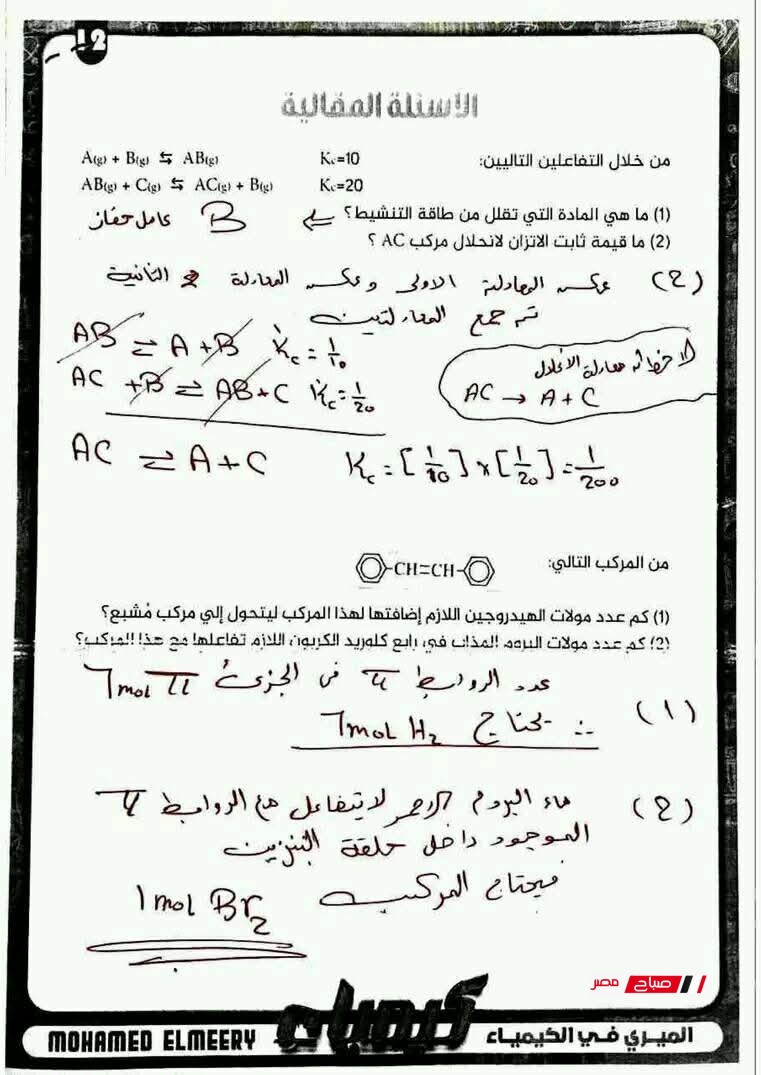 12
الاسئلة المقالية
من خلال التفاعلين التاليين:
A(g) + B(g) ⇆ AB(g) Kc=10
AB(g) + C(g) ⇆ AC(g) + B(g) Kc=20
(1) ما هي المادة التي تقلل من طاقة التنشيط؟ B عامل حفاز
(2) ما قيمة ثابت الاتزان لانحلال مركب AC ؟
(2) عكس المعادلة الاولى وعكس المعادلة الثانية
ثم جمع المعادلتين
AB ⇌ A + B Kc = 1/10
AC + B ⇌ AB + C Kc = 1/20
معادلة الانحلال
AC → A + C
AC ⇌ A + C Kc = [1/10] × [1/20] = 1/200
من المركب التالي:
CH=CH
(1) كم عدد مولات الهيدروجين اللازم إضافتها لهذا المركب ليتحول إلي مركب مُشبع؟
(2) كم عدد مولات البروم المذاب في رابع كلوريد الكربون اللازم تفاعلها مع هذا المركب؟
(1) عدد الروابط π في الجزئ 7 mol π
∴ يحتاج 7 mol H2
(2) ماء البروم الاحمر لا يتفاعل مع الروابط π
الموجود داخل حلقة البنزين
فيحتاج المركب
1 mol Br2
صباح مصر
MOHAMED ELMEERY كيمياء الميري في الكيمياء